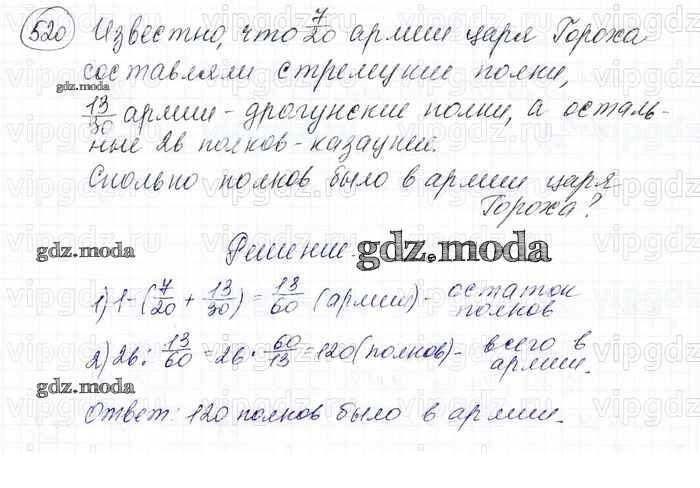 520 Известно, что 7/20 армии царя Гороха
составляли стрелецкие полки,
gdz.moda
13/30 армии - драгунские полки, а осталь-
ные 26 полков - казацкие.
Сколько полков было в армии царя
Гороха?
gdz.moda
Решение.
gdz.moda
1) 1-(7/20 + 13/30) = 13/60 (армии) - остаток
полков
2) 26 : 13/60 = 26 · 60/13 = 120 (полков) - всего в
армии.
gdz.moda
Ответ: 120 полков было в армии.